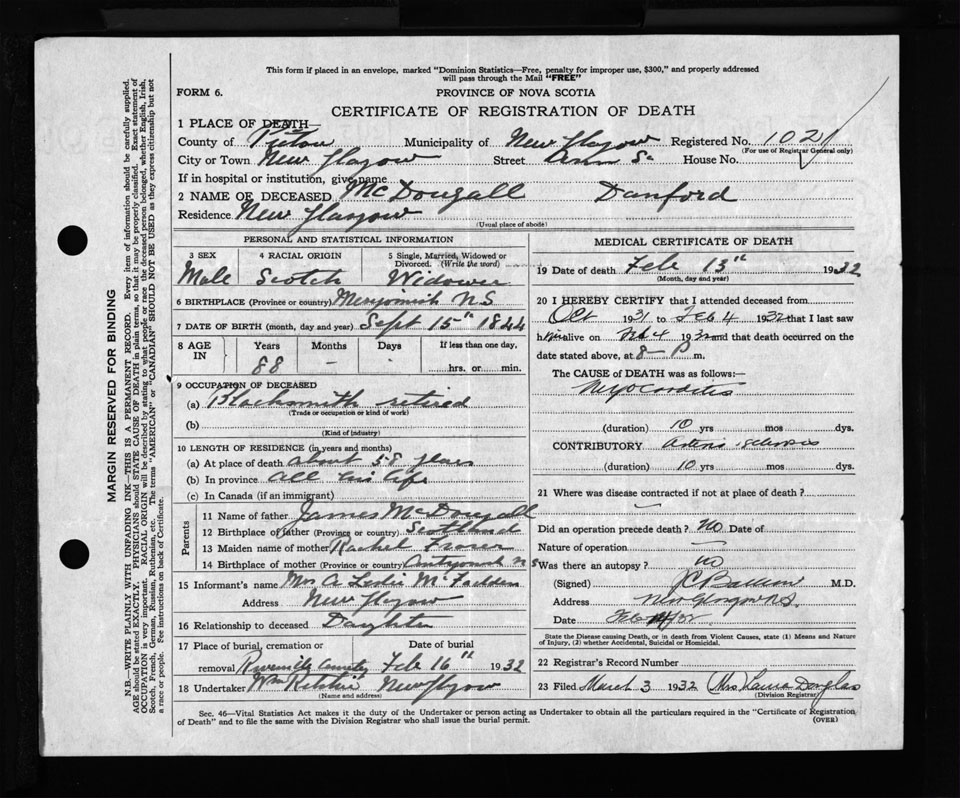 This form if placed in an envelope, marked "Dominion Statistics—Free, penalty for improper use, $300," and properly addressed
will pass through the Mail "FREE"
FORM 6.
PROVINCE OF NOVA SCOTIA
CERTIFICATE OF REGISTRATION OF DEATH
1 PLACE OF DEATH—
County of Pictou Municipality of New Glasgow Registered No. 102
(For use of Registrar General only)
City or Town New Glasgow Street House No.
If in hospital or institution, give name
2 NAME OF DECEASED McDougall Danford
Residence New Glasgow
(Usual place of abode)
PERSONAL AND STATISTICAL INFORMATION
3 SEX 4 RACIAL ORIGIN 5 Single, Married, Widowed or
Divorced. (Write the word)
Male Scotch Widower
6 BIRTHPLACE (Province or country) Merigomish NS
7 DATE OF BIRTH (month, day and year) Sept 15th 1844
8 AGE IN Years Months Days If less than one day,
88 — - hrs. or min.
9 OCCUPATION OF DECEASED
(a) Blacksmith retired
(Trade or occupation or kind of work)
(b)
(Kind of industry)
10 LENGTH OF RESIDENCE (in years and months)
(a) At place of death about 58 years
(b) In province all his life
(c) In Canada (if an immigrant)
Parents
11 Name of father James McDougall
12 Birthplace of father (Province or country) Scotland
13 Maiden name of mother Rachel Fraser
14 Birthplace of mother (Province or country) Antigonish NS
15 Informant's name Mrs A Leslie McFadden
Address New Glasgow
16 Relationship to deceased Daughter
17 Place of burial, cremation or Date of burial
removal Riverside Cemetery Feb 16th 1932
18 Undertaker Wm Ritchie New Glasgow
(Name and address)
MEDICAL CERTIFICATE OF DEATH
19 Date of death Feb 13th 1932
(Month, day and year)
20 I HEREBY CERTIFY that I attended deceased from
Oct 1931 to Feb 4 1932 that I last saw
him alive on Feb 4 1932 and that death occurred on the
date stated above, at 8— P m.
The CAUSE of DEATH was as follows:—
Myocarditis
(duration) 10 yrs mos dys.
CONTRIBUTORY Arterio sclerosis
(duration) 10 yrs mos dys.
21 Where was disease contracted if not at place of death?
Did an operation precede death? No Date of
Nature of operation —
Was there an autopsy? no
(Signed) M.D.
Address New Glasgow N.S.
Date Feb /32
State the Disease causing Death, or in death from Violent Causes, state (1) Means and Nature
of Injury, (2) whether Accidental, Suicidal or Homicidal.
22 Registrar's Record Number
23 Filed March 3 1932 Mrs Laura Douglas
(Division Registrar)
Sec. 46—Vital Statistics Act makes it the duty of the Undertaker or person acting as Undertaker to obtain all the particulars required in the "Certificate of Registration
of Death" and to file the same with the Division Registrar who shall issue the burial permit.
(OVER)
MARGIN RESERVED FOR BINDING
N.B.—WRITE PLAINLY WITH UNFADING INK—THIS IS A PERMANENT RECORD. Every item of information should be carefully supplied.
AGE should be stated EXACTLY. PHYSICIANS should STATE CAUSE OF DEATH in plain terms, so that it may be properly classified. Exact statement of
OCCUPATION is very important. RACIAL ORIGIN will be described by stating to what people or race the deceased person belonged, whether English, Irish,
Scotch, French, German, Russian, Ruthenian, etc. The terms "AMERICAN" or "CANADIAN" SHOULD NOT BE USED as they express citizenship but not
a race or people. Fee instructions on back of Certificate.